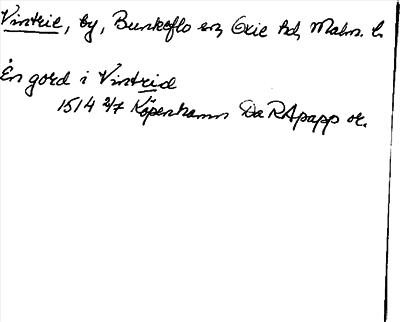 Vintrie, by, Bunkeflo sn, Oxie hd, Malm. l.
En gord i Vintrid
1514 2/7 Köpenhamn Da RApapp or.